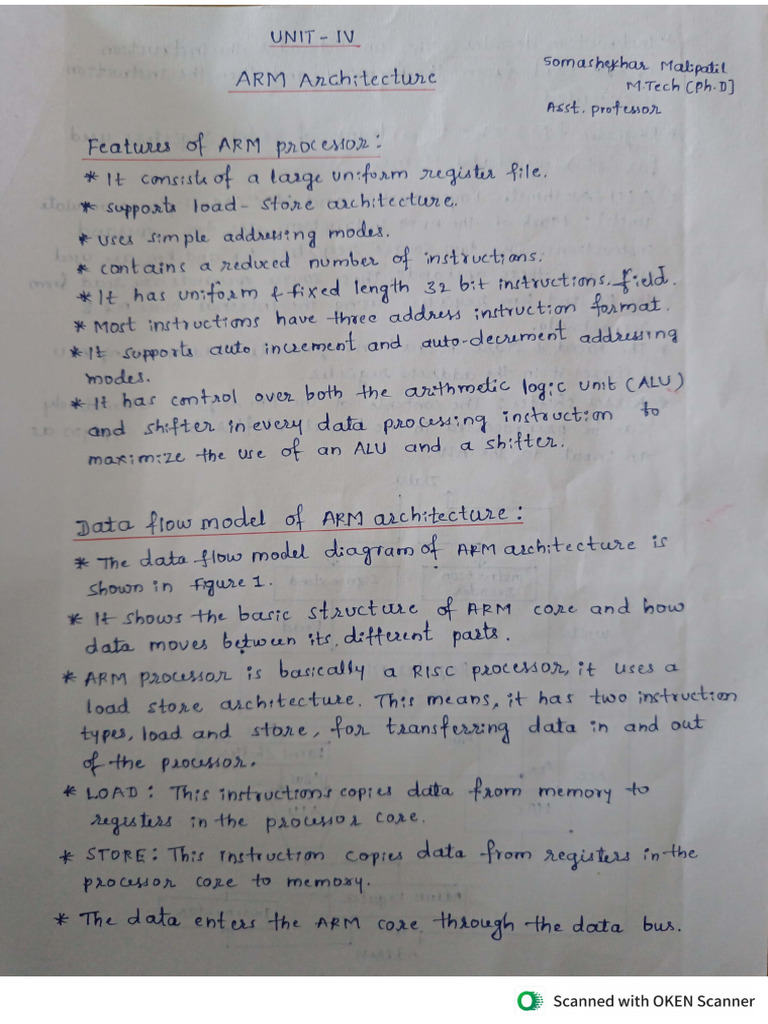 UNIT - IV
ARM Architecture
Somashekhar Malipatil
M.Tech [Ph.D]
Asst. professor
Features of ARM processor:
* It consists of a large uniform register file.
* supports load-store architecture.
* uses simple addressing modes.
* contains a reduced number of instructions.
* It has uniform & fixed length 32 bit instructions. field.
* Most instructions have three address instruction format.
* It supports auto increment and auto-decrement addressing
modes.
* It has control over both the arithmetic logic unit (ALU)
and shifter in every data processing instruction to
maximize the use of an ALU and a shifter.
Data flow model of ARM architecture:
* The data flow model diagram of ARM architecture is
shown in figure 1.
* It shows the basic structure of ARM core and how
data moves between its different parts.
* ARM processor is basically a RISC processor, it uses a
load store architecture. This means, it has two instruction
types, load and store, for transferring data in and out
of the processor.
* LOAD: This instructions copies data from memory to
registers in the processor core.
* STORE: This instruction copies data from registers in the
processor core to memory.
* The data enters the ARM core through the data bus.
Scanned with OKEN Scanner